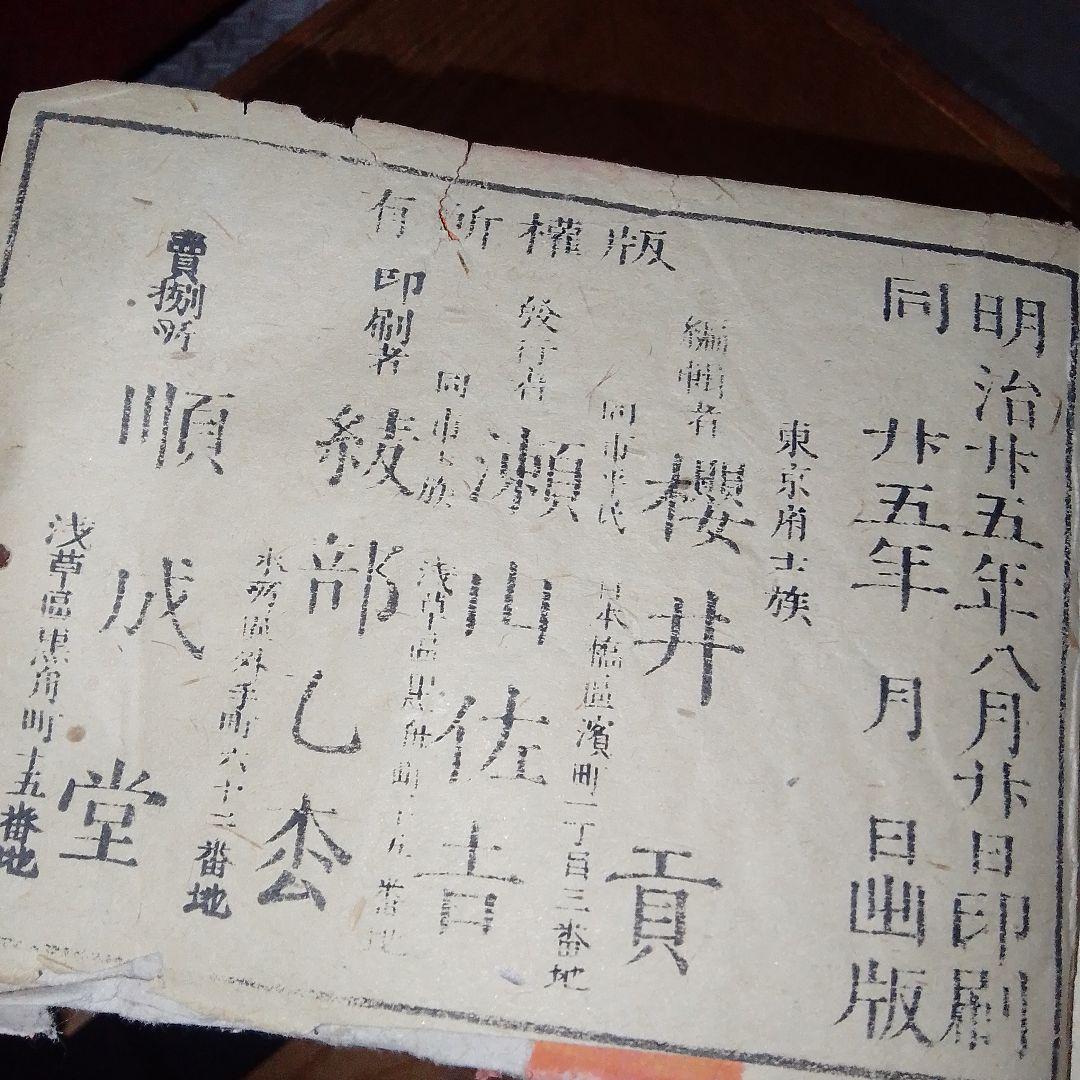 明治廿五年八月廿日印刷
同 廿五年 月 日出版
版權所有
東京府士族
編輯者 櫻井 貢
日本橋區濱町一丁目三番地
同市平民
發行者 瀬山佐吉
淺草區黒舩町十五番地
同市士族
印刷者 綾部乙
本所區外手町六十二番地
賣捌所 順成堂
淺草區黒舩町十五番地